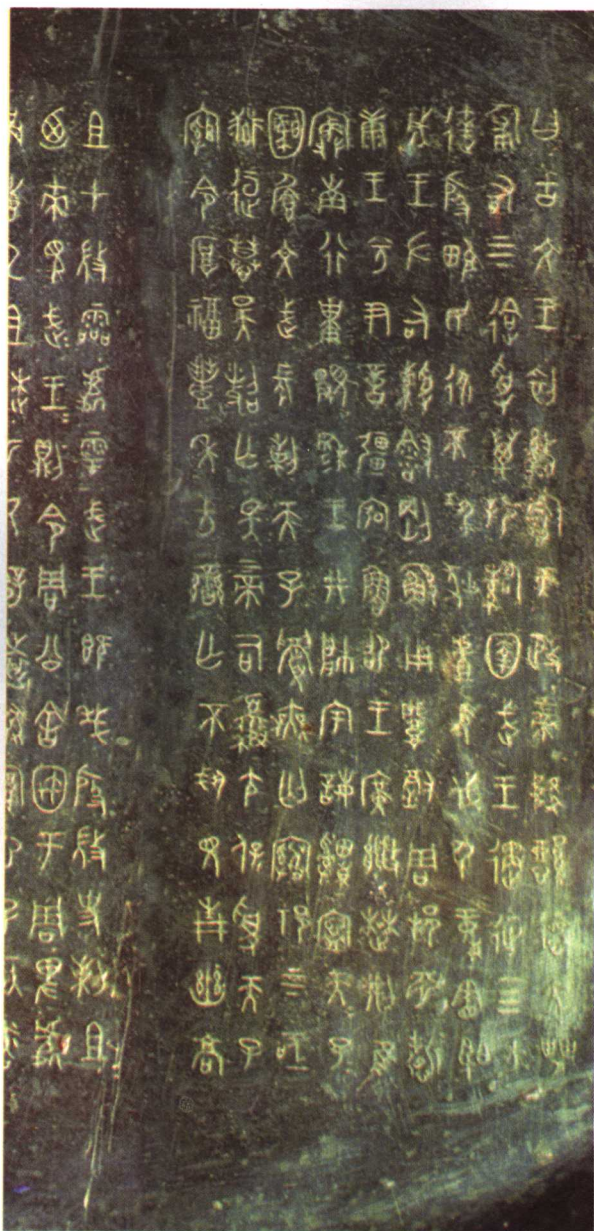 曰古文王初盭龢于政上帝降懿德大甹
匍有上下迨受萬邦䋣圉武王遹征四方
達殷畯民永不巩狄虘𢦏伐尸童憲聖
成王左右剛鯀用肇徹周邦淵哲
康王分尹億疆宏魯昭王廣能楚荊隹
寏南行祗顯穆王井帥宇誨申寧天子
圝文武長剌天子眉無匄祁上下
亟熙桓謨昊照亡斁上帝司夒尣保受天子
綰令厚福豐年方蠻亡不見青幽高
且才𢼸霝處雩武王既𢦏殷𢼸史剌且
廼來見武王武王則令周公舍㝢于周卑處